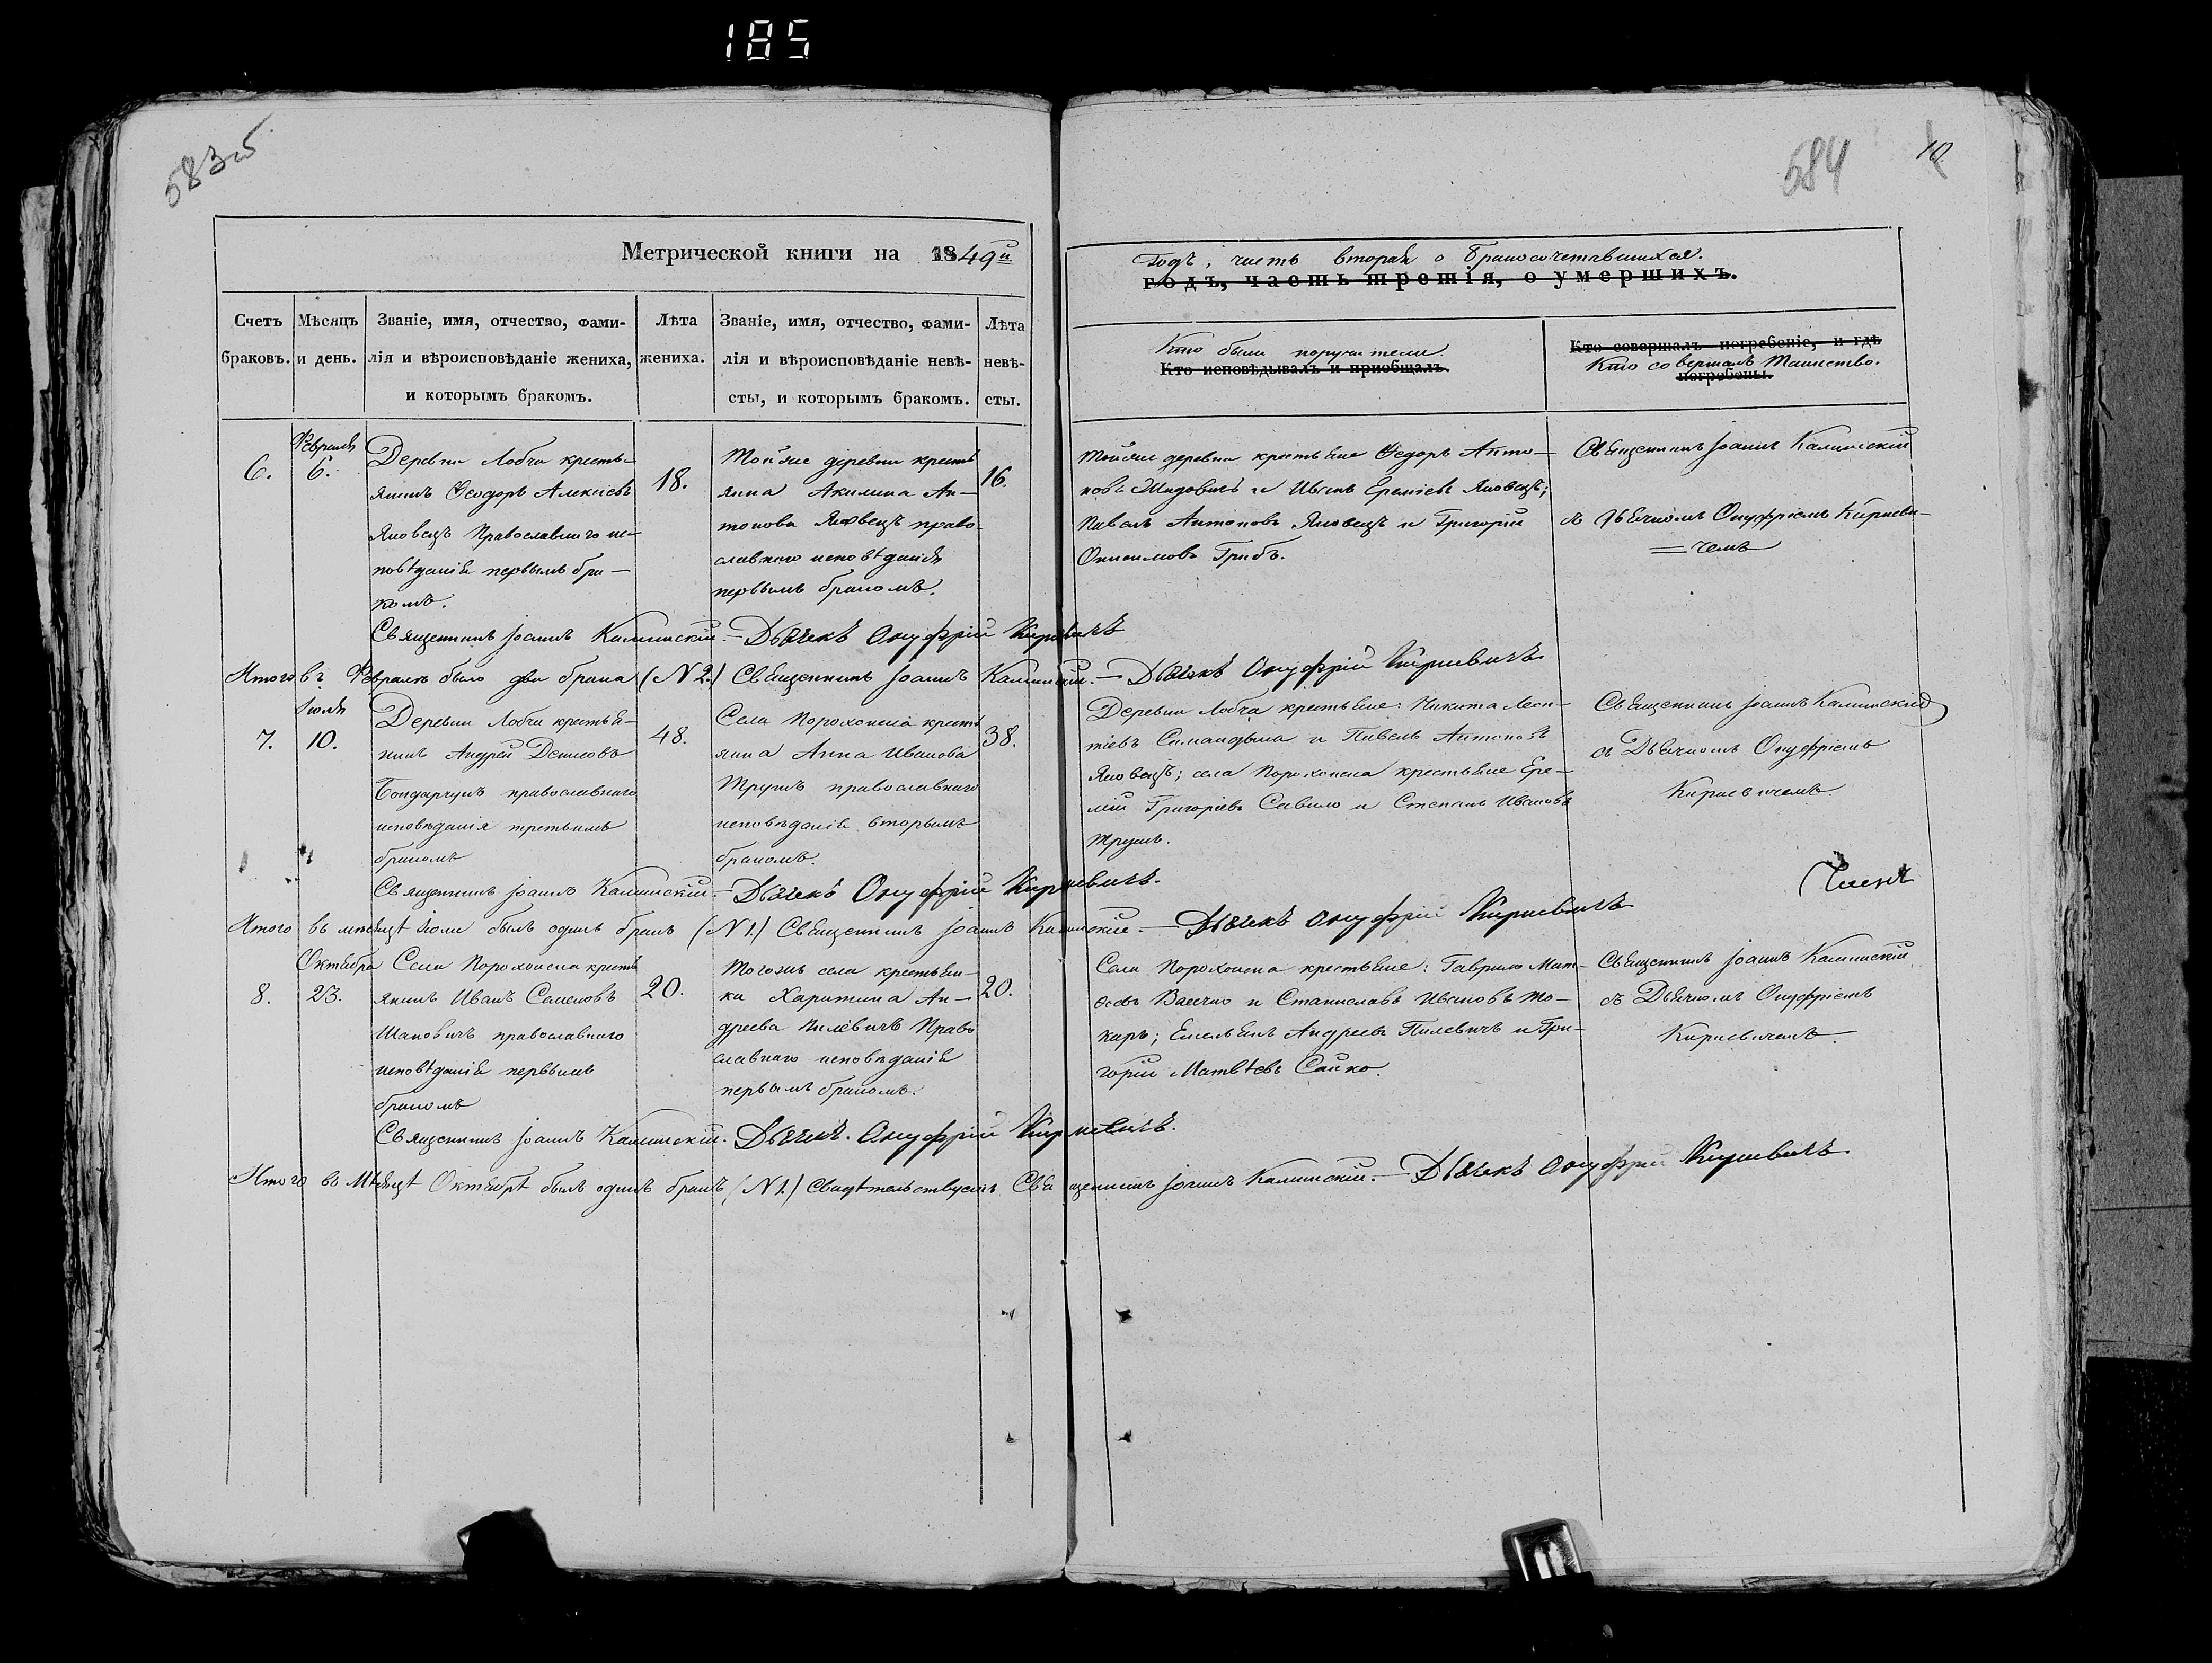 185
583об
584
10
Метрической книги на 1849й
Годъ, часть вторая о бракосочетавшихся.
годъ, часть третія, о умершихъ.
Счетъ браковъ.
Мѣсяцъ и день.
Званіе, имя, отчество, фами-
лія и вѣроисповѣданіе жениха,
и которымъ бракомъ.
Лѣта
жениха.
Званіе, имя, отчество, фами-
лія и вѣроисповѣданіе невѣ-
сты, и которымъ бракомъ.
Лѣта
невѣ-
сты.
Кто были поручители.
Кто исповѣдывалъ и пріобщалъ.
Кто совершалъ погребеніе, и гдѣ
Кто совершалъ Таинство.
погребены.
6.
Февраля
6.
Деревни Лобча кресть-
янинъ Ѳеодоръ Алексіевъ
Яковецъ Православнаго ис-
повѣданія первымъ бра-
комъ.
18.
Тойже деревни кресть
янка Акилина Ан-
тонова Яковецъ право-
славнаго исповѣданія
первымъ бракомъ.
16.
Тойже деревни крестьяне Ѳедоръ Анто-
новъ Жидовичъ и Иванъ Ереміевъ Яковецъ;
Павелъ Антоновъ Яковецъ и Григорій
Онисимовъ Грибъ.
Священникъ Іоаннъ Калинскій
съ Дьячкомъ Онуфріемъ Кирневи-
=чемъ
Священникъ Іоаннъ Калинскій. - Дьячекъ Онуфрій Кирневичъ
Итого въ Февралѣ было два брака (N 2.) Священникъ Іоаннъ Калинскій. - Дьячекъ Онуфрій Кирневичъ.
7.
Іюля
10.
Деревни Лобча крестья-
нинъ Андрей Денисовъ
Бондарчукъ православнаго
исповѣданія третьимъ
бракомъ
48.
Села Порохонска кресть
янка Анна Иванова
Трушъ православнаго
исповѣданія вторымъ
бракомъ.
38.
Деревни Лобча крестьяне: Никита Леон-
тіевъ и Павелъ Антоновъ
Яковецъ; села Порохонска крестьяне Ере-
мій Григоріевъ Савило и Степанъ Ивановъ
Трушъ.
Священникъ Іоаннъ Калинскій
съ Дьячкомъ Онуфріемъ
Кирневичемъ.
Священникъ Іоаннъ Калинскій - Дьячекъ Онуфрій Кирневичъ.
Итого въ мѣсяцѣ Іюли былъ одинъ бракъ (N 1.) Священникъ Іоаннъ Калинскій. - Дьячекъ Онуфрій Кирневичъ
8.
Октября
23.
Села Порохонска кресть
янинъ Иванъ Семеновъ
Шановичъ православнаго
исповѣданія первымъ
бракомъ
20.
Тогожъ села крестьян-
ка Харитина Ан-
дреева Пилевичъ Право
славнаго исповѣданія
первымъ бракомъ.
20.
Села Порохонска крестьяне: Гаврило Мат-
и Станиславъ Ивановъ То-
карь; Емельянъ Андреевъ Пилевичъ и Гри-
горій Матвѣевъ Сайко.
Священникъ Іоаннъ Калинскій
съ Дьячкомъ Онуфріемъ
Кирневичемъ.
Священникъ Іоаннъ Калинскій. Дьячекъ. Онуфрій Кирневичъ.
Итого въ Мѣсяцѣ Октябрѣ былъ одинъ бракъ (N 1.) Священникъ Іоаннъ Калинскій. - Дьячекъ Онуфрій Кирневичъ.